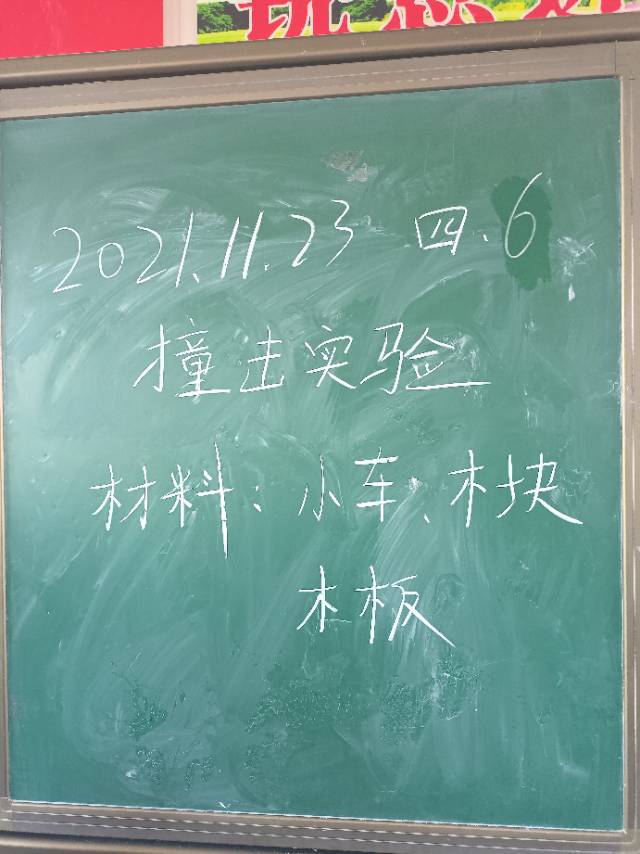 2021.11.23 四.6
撞击实验
材料:小车、木块
木板